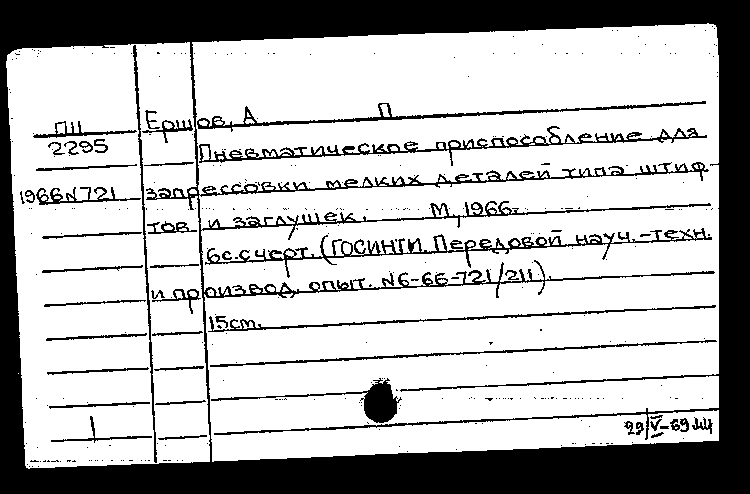 ПII Ершов, А П
2295 Пневматическое приспособление для
1966 N 721 запрессовки мелких деталей типа штиф-
тов и заглушек. М, 1966.
6с.с черт. (ГОСИНТИ. Передовой науч.-техн.
и производ. опыт. N6-66-721/211).
15см.
29/V-69